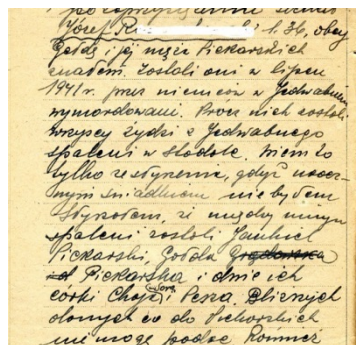 Józef l. 36, obcy
Gołdę i jej męża Piekarskich
znałem. Zostali oni w lipcu
1941 r. przez niemców w Jedwabnem
wymordowani. Przez nich zostali
wszyscy żydzi z Jedwabnego
spaleni w stodole. Wiem to
tylko ze słyszenia, gdyż naocz-
nym świadkiem nie byłem
Słyszałem, że między innymi
spaleni zostali Jankiel
Piekarski, Gołda
Piekarska i dwie ich
córki Chaja Sora i Pesza. Bliższych
danych co do Piekarskich
nie mogę podać Również